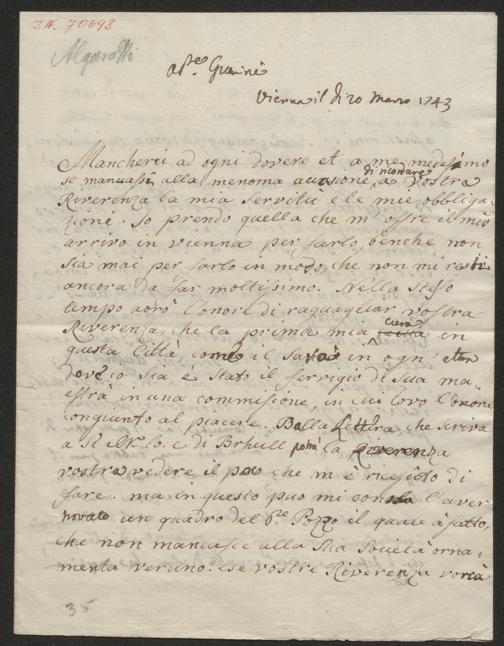 I.N. 70698
Algarotti
Vienna il di 20 Marzo 1743
Mancherei ad ogni dovere et a me medesimo
di ricordare
se mancassi alla menoma occasione, a Vostra
Riverenza la mia servitu e le mie obbliga-
zioni. Io prendo quella che m'offre il mio
arrivo in vienna per farlo, benche non
sia mai per farlo in modo, che non mi resti
ancora da far moltissimo. Nella stesso
tempo avrò l'onore di ragguagliar vostra
cura
Riverenza, che la prima mia in
questa Città, come il sarà in ogni
dove io sia, è stato il servigio di sua ma-
està in una commissione, in cui trovo l'onore
congiunto al piacere. Dalla lettera che scriva
a S. E. il Sr. C. di Brhull potrà la Riverenza
vostra vedere il poco che m'è riescito di
fare. ma in questo puo mi consola l'aver
trovato un quadro del Pre Pozzo il quale à fatto,
che non mancasse alla Sua Società orna-
mento veruno. e se vostra Riverenza vorrà
35